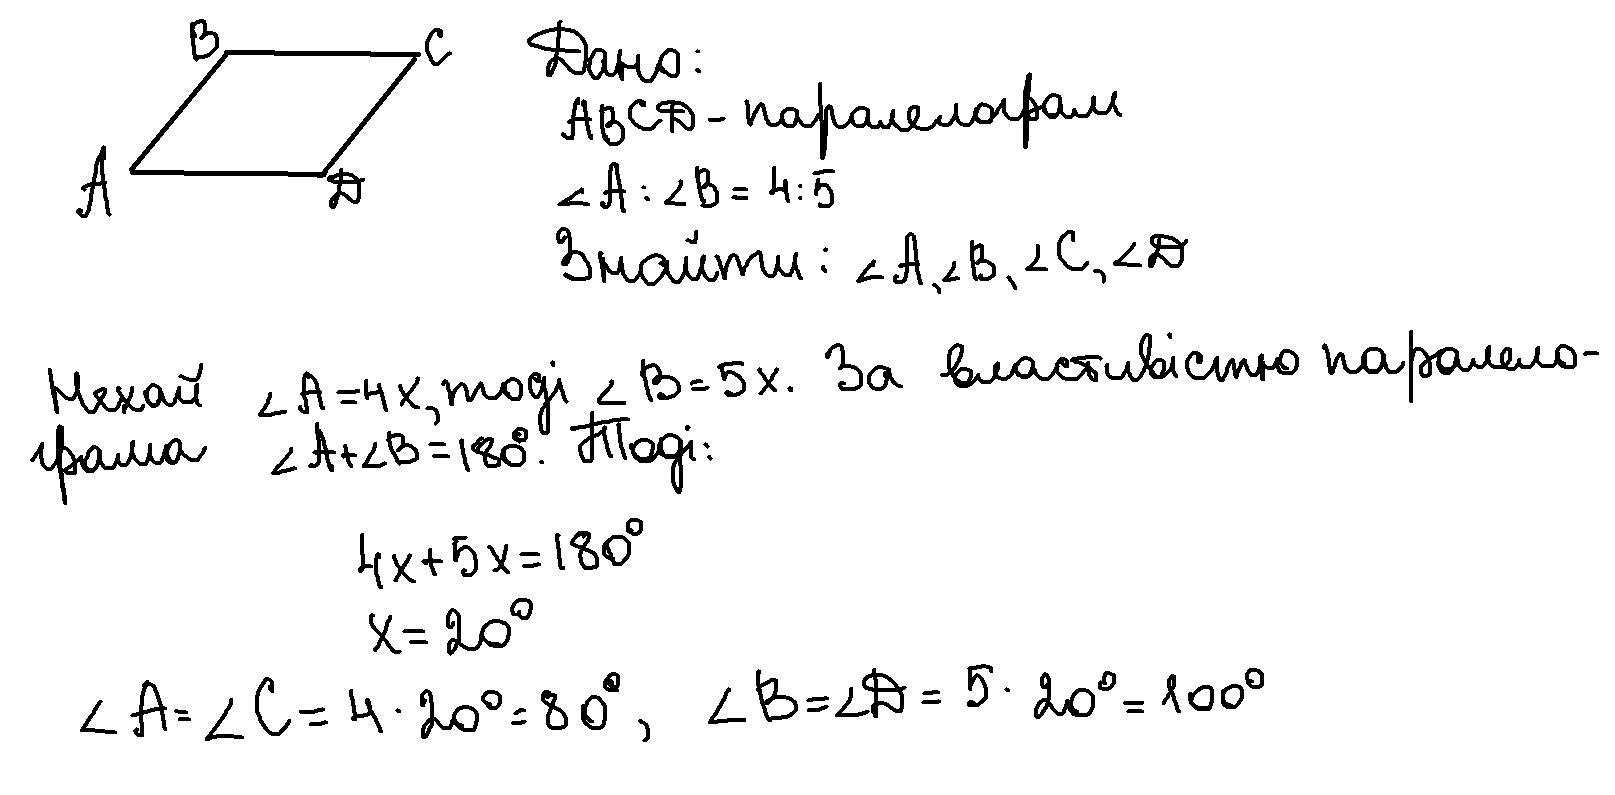 B C
A D
Дано:
ABCD - паралелограм
∠A : ∠B = 4:5
Знайти: ∠A, ∠B, ∠C, ∠D
Нехай ∠A = 4x, тоді ∠B = 5x. За властивістю паралело-
грама ∠A+∠B=180°. Тоді:
4x+5x=180°
x=20°
∠A=∠C=4·20°=80°, ∠B=∠D=5·20°=100°